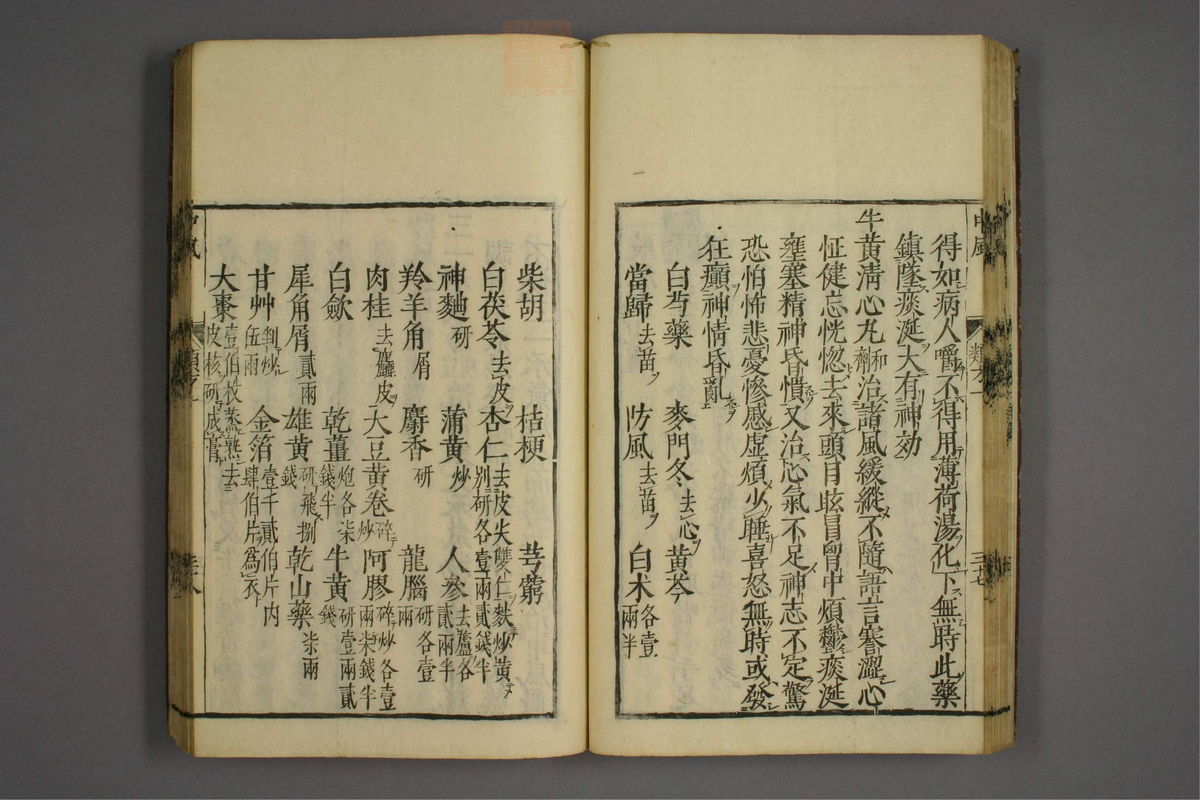 得如病人嚼不得用薄荷湯化下無時此藥
鎮墜痰涎大有神効
牛黃淸心丸和劑治諸風緩縱不隨語言謇澀心
怔健忘恍惚去來頭目眩冒胷中煩鬱痰涎
壅塞精神昏憒又治心氣不足神志不定驚
恐怕怖悲憂慘慼虛煩少睡喜怒無時或發
狂癲神情昏亂
白芍藥 麥門冬去心 黃芩
當歸去苗 防風去苗 白朮各壹兩半
柴胡 桔梗 芎藭
白茯苓去皮 杏仁去皮尖雙仁麩炒黃別研各壹兩貳錢半
神麯研 蒲黃炒 人參去蘆各貳兩半
羚羊角屑 麝香研 龍腦研各壹兩
肉桂去麤皮 大豆黃卷碎炒 阿膠碎炒各壹兩柒錢半
白歛 乾薑炮各柒錢半 牛黃研壹兩貳錢
犀角屑貳兩 雄黃研飛捌錢 乾山藥柒兩
甘艸剉炒伍兩 金箔壹千貳伯片內肆伯片爲衣
大棗壹伯枚蒸熟去皮核研成膏
中風
類方一
三十七
中風